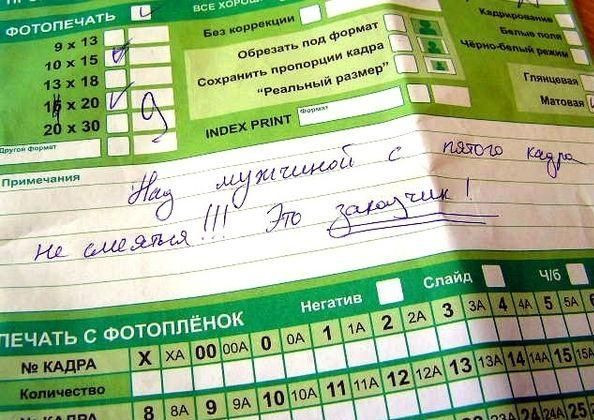 ВСЕ ХОРОШ
ФОТОПЕЧАТЬ
9 x 13
10 x 15
13 x 18
20
20 x 30
9
Другой формат
Без коррекции
Обрезать под формат
Сохранить пропорции кадра
"Реальный размер"
INDEX PRINT
Формат
Кадрирование
Белые поля
Чёрно-белый режим
Глянцевая
Матовая
Примечания
Над мужчиной с пятого кадра
не смеяться!!! Это заказчик!
Негатив
Слайд
Ч/б
ПЕЧАТЬ С ФОТОПЛЁНОК
№ КАДРА X XA 00 00A 0 0A 1 1A 2 2A 3 3A 4 4A 5 5A 6
Количество
№ КАДРА 8 8A 9 9A 10 10A 11 11A 12 12A 13 13A 14 14A 15 15A
23 24 24A 25